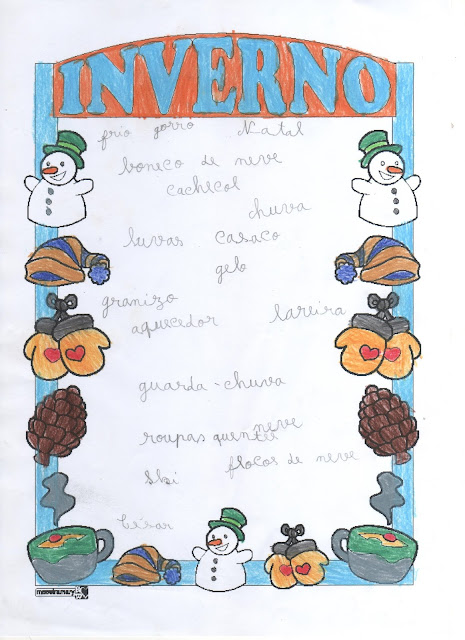 INVERNO
frio gorro Natal
boneco de neve
cachecol
chuva
luvas casaco
gelo
granizo
aquecedor lareira
guarda-chuva
neve
roupas quentes
flocos de neve
César